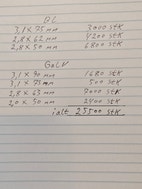 3,1 x 75 mm 3000 STK
2,8 x 62 mm 4200 STK
2,8 x 50 mm 6800 STK
GALV
3,1 x 90 mm 1680 STK
3,1 x 75 mm 500 STK
2,8 x 63 mm 7000 STK
2,0 x 50 mm 2400 STK
ialt 25500 STK